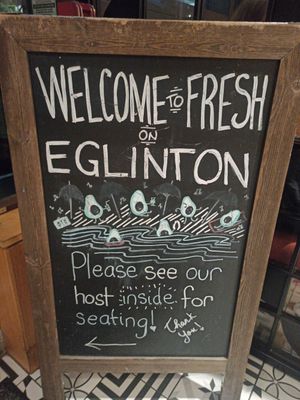 WELCOME TO FRESH
ON
EGLINTON
Please see our
host inside for
seating!
Thank
you!